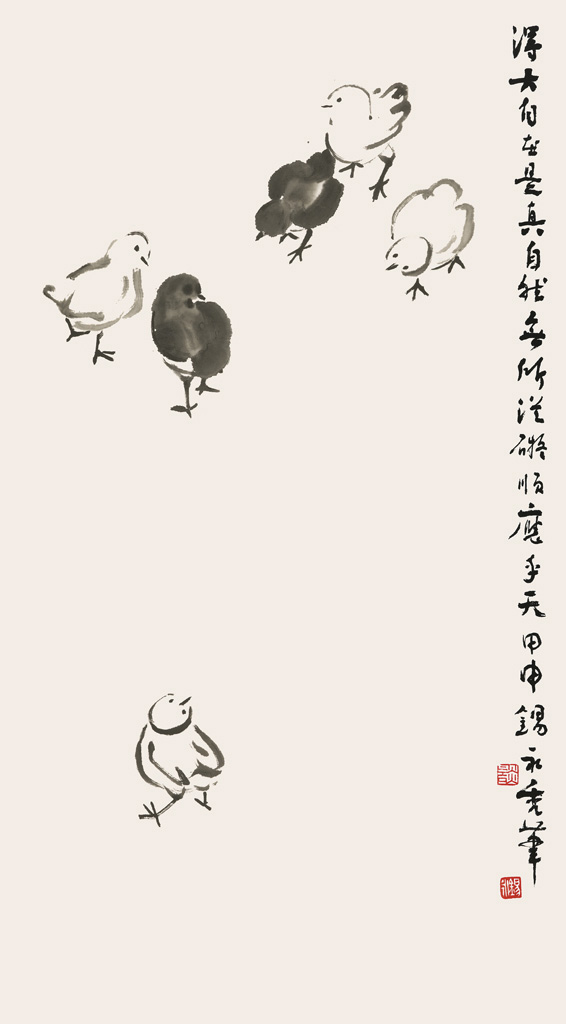 得大自在是真自然無所從礙順應乎天甲申錫永秃筆